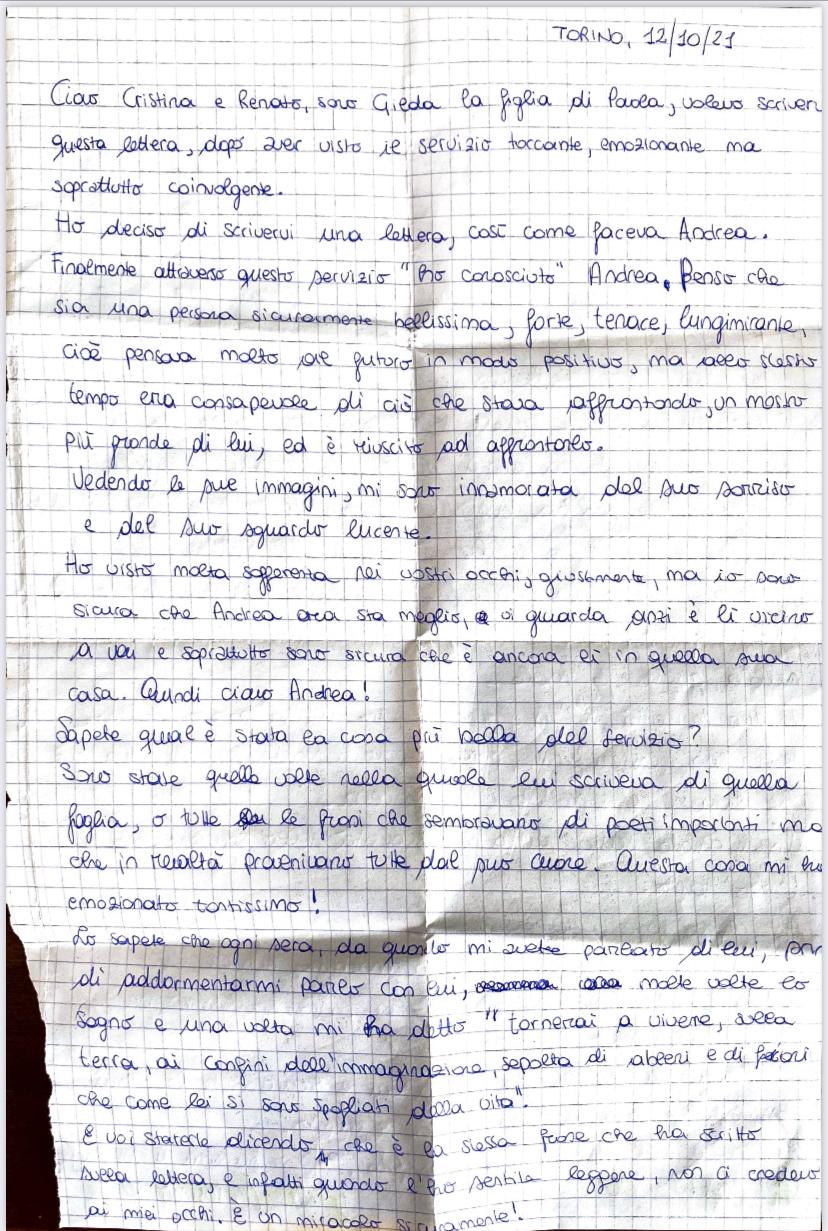 TORINO, 12/10/21
Ciao Cristina e Renato, sono Gieda la figlia di Paola, volevo scriver
questa lettera, dopo aver visto il servizio toccante, emozionante ma
soprattutto coinvolgente.
Ho deciso di scrivervi una lettera, così come faceva Andrea.
Finalmente attraverso questo servizio "ho conosciuto" Andrea. Penso che
sia una persona sicuramente bellissima, forte, tenace, lungimirante,
cioè pensava molto al futuro in modo positivo, ma allo stesso
tempo era consapevole di ciò che stava affrontando, un mostro
più grande di lui, ed è riuscito ad affrontarlo.
Vedendo le sue immagini, mi sono innamorata del suo sorriso
e del suo sguardo lucente.
Ho visto molta sofferenza nei vostri occhi, giustamente, ma io sono
sicura che Andrea ora sta meglio, e vi guarda anzi è lì vicino
a voi e soprattutto sono sicura che è ancora lì in quella sua
casa. Quindi ciao Andrea!
Sapete qual è stata la cosa più bella del servizio?
Sono state quelle volte nella quale lui scriveva di quella
foglia, o tutte le frasi che sembravano di poeti importanti ma
che in realtà provenivano tutte dal suo cuore. Questa cosa mi ha
emozionato tantissimo!
Lo sapete che ogni sera, da quando mi avete parlato di lui,
di addormentarmi parlo con lui, molte volte lo
sogno e una volta mi ha detto "tornerai a vivere, sulla
terra, ai confini dell'immaginazione, sepolta di alberi e di fiori
che come lei si sono spogliati della vita".
E voi starete dicendo, che è la stessa frase che ha scritto
sulla lettera, e infatti quando l'ho sentita leggere, non ci credevo
ai miei occhi. È un miracolo sicuramente!